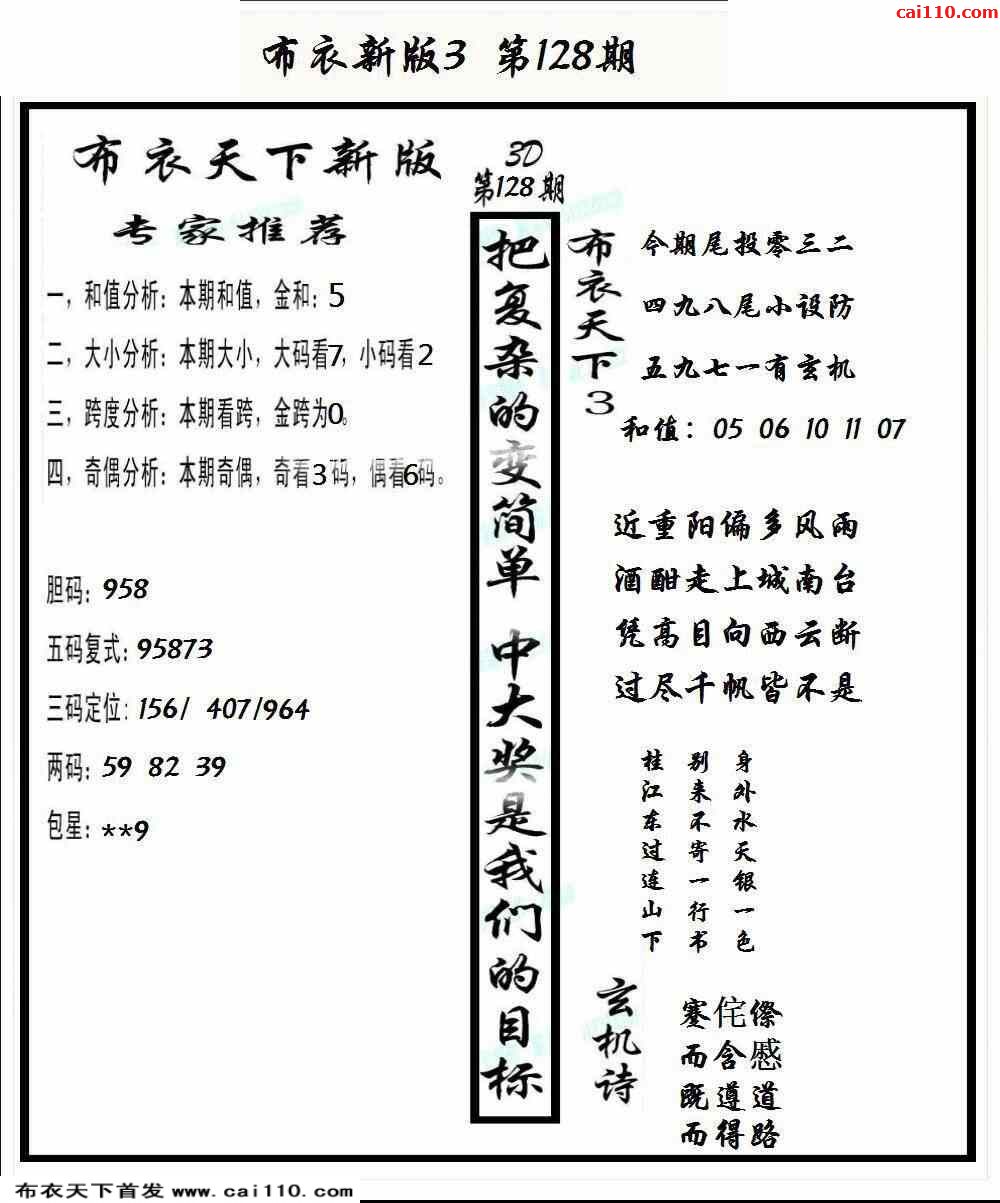 cai110.com
布衣新版3 第128期
布衣天下新版
专家推荐
一，和值分析：本期和值，金和：5
二，大小分析：本期大小，大码看7，小码看2
三，跨度分析：本期看跨，金跨为0。
四，奇偶分析：本期奇偶，奇看3码，偶看6码。
胆码：958
五码复式：95873
三码定位：156/ 407/964
两码：59 82 39
包星：**9
3D
第128期
把复杂的变简单 中大奖是我们的目标
布衣天下3
今期尾投零三二
四九八尾小设防
五九七一有玄机
和值：05 06 10 11 07
近重阳偏多风雨
酒酣走上城南台
凭高目向西云断
过尽千帆皆不是
身外水天银一色
别来不寄一行书
桂江东过连山下
玄机诗
蹇侘傺
而含慼
既遵道
而得路
布衣天下首发 www.cai110.com